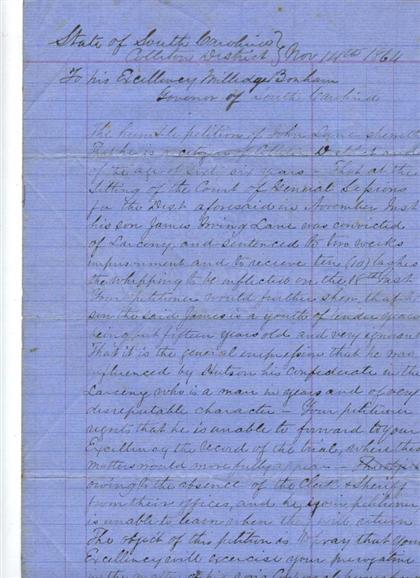 State of South Carolina }
Colleton District } Nov 14th 1864
To his Excellency Milledge Bonham
Governor of South Carolina
The humble petition of John Lane sheweth
That he is a citizen of Colleton Dist and
of the age of Sixty six years - That at the
Sitting of the Court of General Sessions
for the Dist aforesaid in November Inst
his son James Irving Lane was convicted
of Larceny and Sentenced to two weeks
imprisonment and to receive ten (10) lashes
the whipping to be inflicted on the 18th Inst
Your petitioner would further shew that
son the said James is a youth of tender years
being but fifteen years old and very ignorant
That it is the general impression that he was
influenced by Hutson his confederate in the
Larceny who is a man in years and of very
disreputable character - Your petitioner
regrets that he is unable to forward to your
Excellency the record of the trial, where this
matters would more fully appear -
owing to the absence of the Clerk & Sheriff
from their offices, and he your petitioner
is unable to learn when they will return
The object of this petition is to pray that your
Excellency will exercise your prerogative